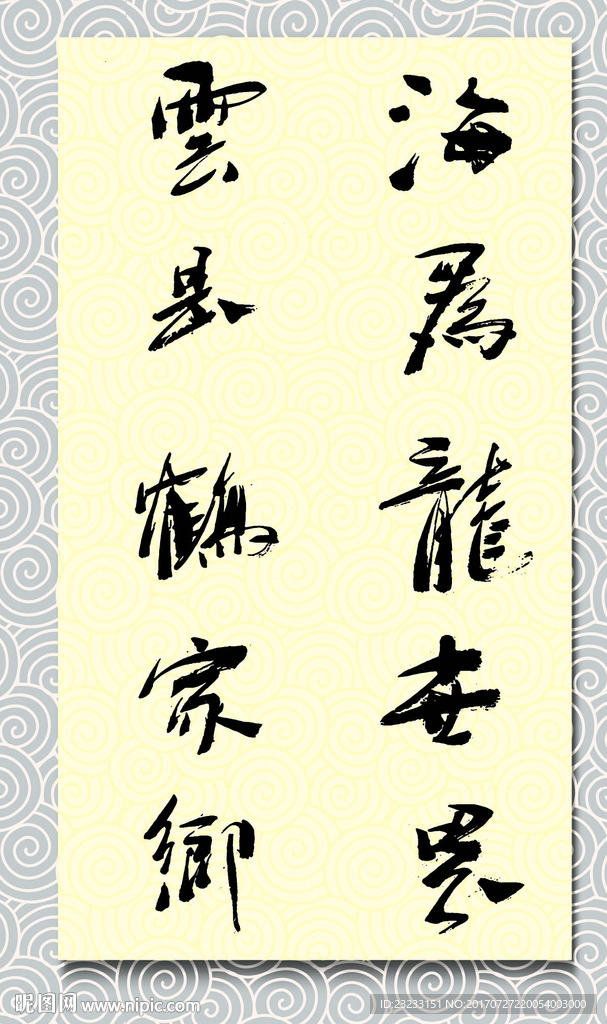 海為龍世界
雲是鶴家鄉
昵图网 www.nipic.com
ID:23233151 NO:20170727220054003000